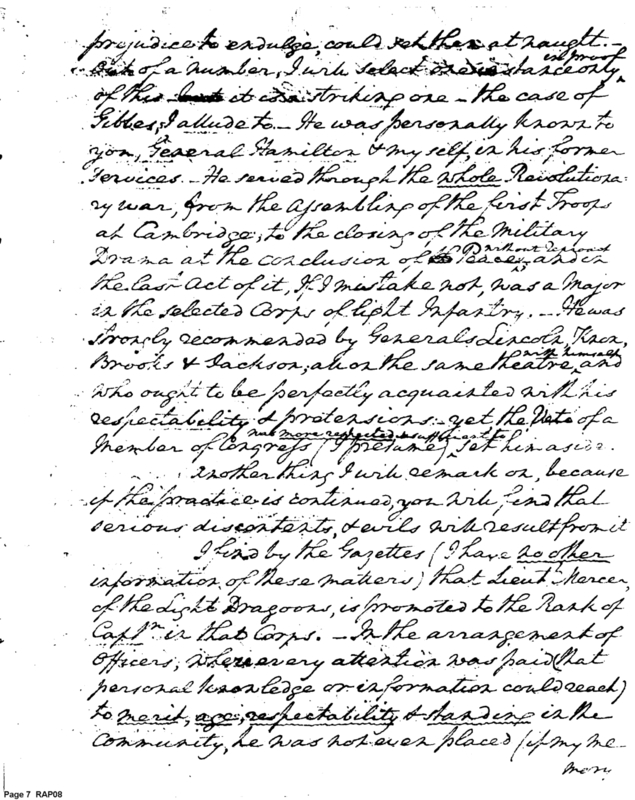 prejudice to endulge, could set them at naught.—
Out of a number, I will select one instance only, in proof
of this but it is a striking one — the case of
Gibbes, I allude to — He was personally known to
you, General Hamilton & myself, in his former
Services. — He served through the whole Revolutiona-
ry war, from the Assembling of the first Troops
at Cambridge, to the closing of the Military
Drama at the conclusion of Peace, without reproach and in
the last Act of it, If I mistake not, was a Major
in the selected Corps of light Infantry. — He was
strongly recommended by Generals Lincoln, Knox,
Brooks & Jackson, all on the same theatre with himself, and
who ought to be perfectly acquainted with his
respectability & pretensions — yet the Veto of a
Member of Congress (I presume) was more respected & sufficient to set him aside.
Another thing I will remark on, because
if the practice is continued, you will find that
serious discontents, & evils will result from it
I find by the Gazettes (I have no other
information of these matters) that Lieut. Mercer,
of the Light Dragoons, is promoted to the Rank of
Captn in that Corps. — In the arrangement of
Officers, where every attention was paid (that
personal knowledge or information could reach)
to merit, age, respectability & standing in the
Community, he was not even placed (if my me-
mory
Page 7 RAP08